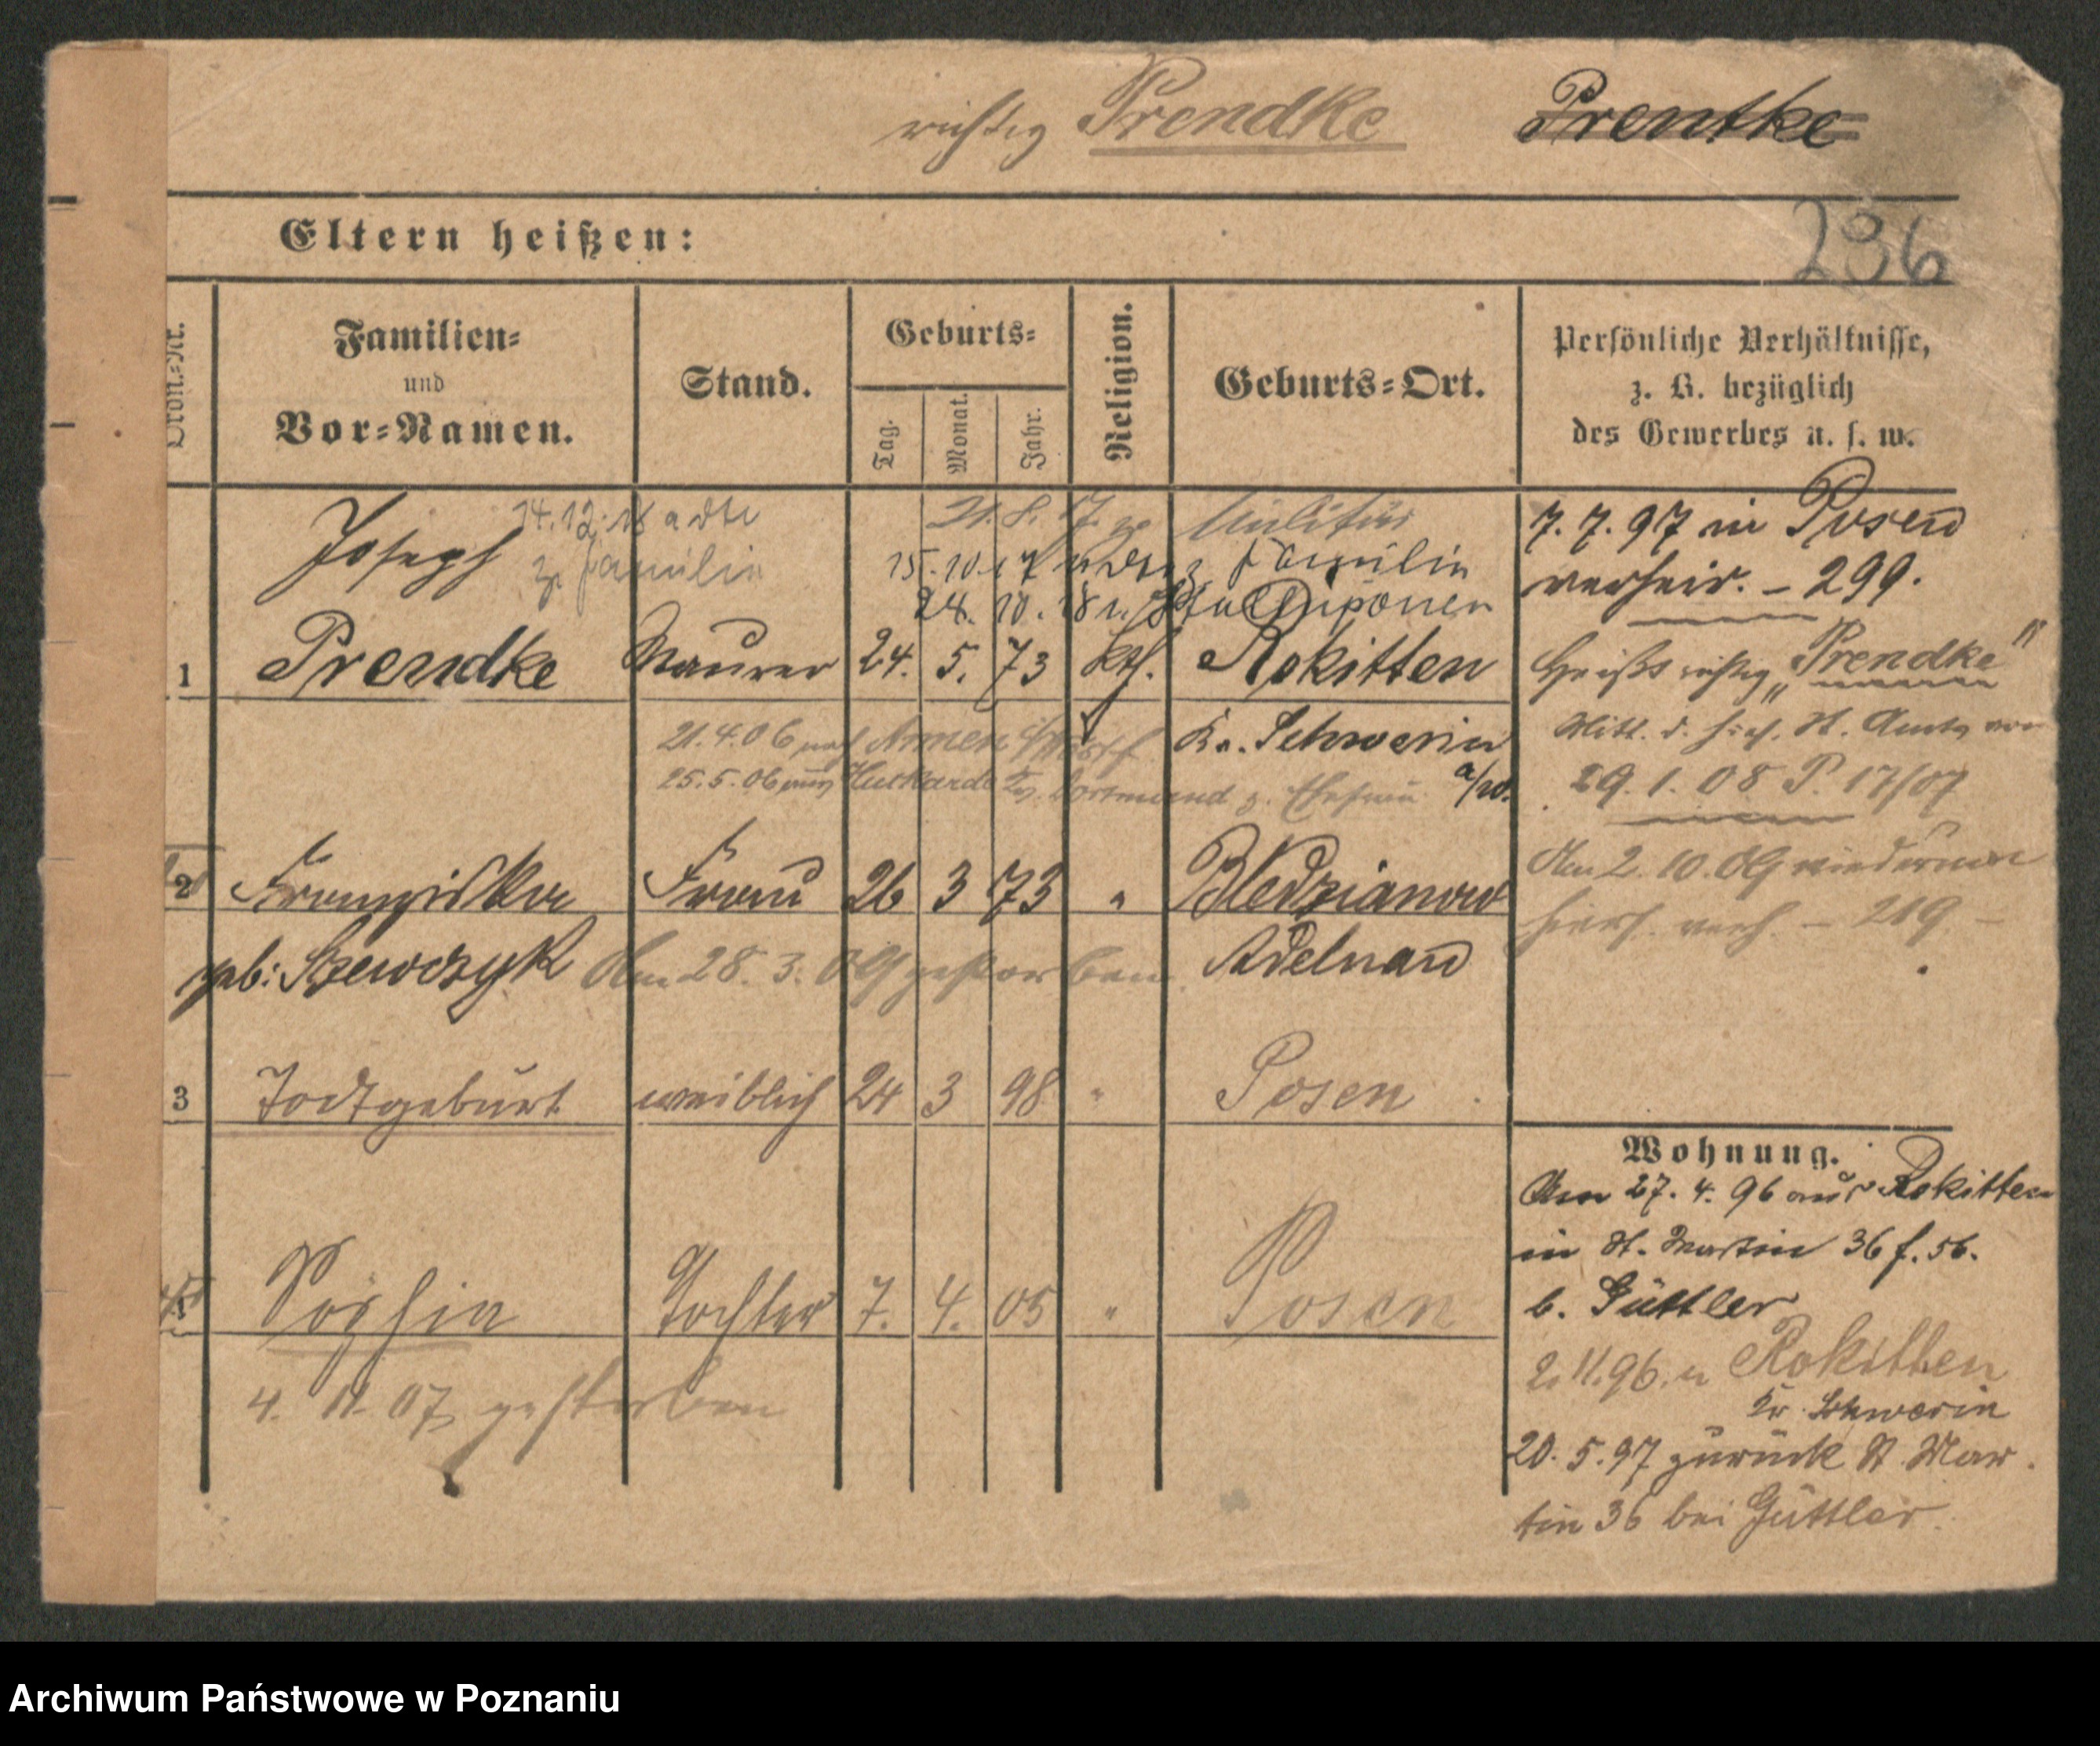 richtig Prendke Prentke
Eltern heißen:
236
Ordn.-Nr.
Familien-
und
Vor-Namen.
Stand.
Geburts-
Tag.
Monat.
Jahr.
Religion.
Geburts-Ort.
Persönliche Verhältnisse,
z. B. bezüglich
des Gewerbes u. s. w.
14.12.18
z. Familie
21.8.17 zum Militär
15.10.17 Familie
24.10.18 n. Stallupönen
Joseph
1 Prendke Maurer 24. 5. 73 kth. Rokitten
Kr. Schwerin
a/W.
21.4.06 nach
25.5.06 Huckarde Kr. Dortmund z. Ehefrau
2 Franziska Frau 26 3 73 " Bledzianow
geb: Szewczyk Am 28. 3. 09 gestorben. Adelnau
3 Todtgeburt weiblich 24 3 98 " Posen
4 Sophia Tochter 7. 4. 05 " Posen
4. 11. 07 gestorben
7. 7. 97 in Posen
verheir. – 299.
Heißt richtig „Prendke"
Mitt. d. hies. St. Amts vom
29. 1. 08 P. 17/07
Am 2. 10. 09 wiederum
hiers. verh. – 219 –
Wohnung.
Am 27. 4. 96 aus Rokitten
in St. Martin 36 f. 56.
b. Güttler
2.11.96. n Rokitten
Kr. Schwerin
20. 5. 97 zurück St. Mar
tin 36 bei Güttler.
Archiwum Państwowe w Poznaniu